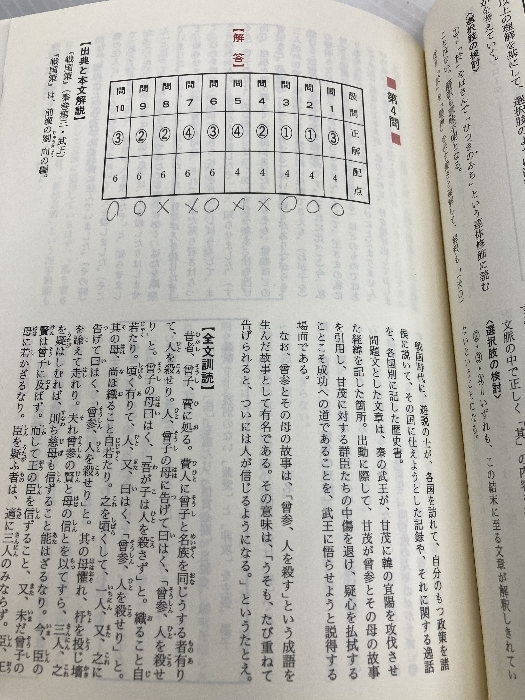 以上の理解を基にして、選択肢の
〈選択肢の検討〉
という連体修飾に読む
文脈の中で正しく
〈選択肢の検討〉
いずれも、この結末に至る文章が解釈しきれてい
■第4問■
【解答】
設問 正解 配点
問1 ③ 4 ○
問2 ① 4 ○
問3 ① 4 ○
問4 ② 4 ×
問5 ④ 4 ×
問6 ③ 6 ○
問7 ④ 6 ×
問8 ② 6 ×
問9 ② 6 ○
問10 ③ 6 ○
【出典と本文解説】
『戦国策』（秦巻第三・武王）
『戦国策』は、前漢の劉向の編。
戦国時代に、遊説の士が、各国を訪れて、自分のもつ政策を諸
侯に説いて、その国に仕えようとした記録や、それに関する逸話
を、各国別に記した歴史書。
問題文とした文章は、秦の武王が、甘茂に韓の宜陽を攻伐させ
た経緯を記した箇所。出動に際して、甘茂が曾参とその母の故事
を引用し、甘茂に対する群臣たちの中傷を退け、疑心を払拭する
ことこそ成功への道であることを、武王に悟らせようと説得する
場面である。
なお、曾参とその母の故事は、「曾参、人を殺す」という成語を
生んだ故事として有名である。その意味は、「うそも、たび重ねて
告げられると、ついには人が信じるようになる。」というたとえ。
【全文訓読】
昔者、曾子、費に処る。費人に曾子と名族を同じうする者有り
て、人を殺せり。人、曾子の母に告げて曰はく、「曾参、人を殺せ
り」と。曾子の母曰はく、「吾が子は人を殺さず」と。織ること自
若たり。頃く有りて、人、又、曰はく、「曾参、人を殺せり」と。
其の母、尚ほ織ること自若たり。之を頃くして、一人、又、之に
告げて曰はく、「曾参、人を殺せり」と。其の母懼れ、杼を投じ墻
を踰えて走れり。夫れ曾参の賢と母の信とを以てすら、三人、之
を疑はしむれば、則ち慈母も信ずること能はざるなり。今、臣の
賢は曾子に及ばず。而して王の臣を信ずること、又、未だ曾子の
母に若かざるなり。臣を疑ふ者は、適に三人のみならず。臣、王